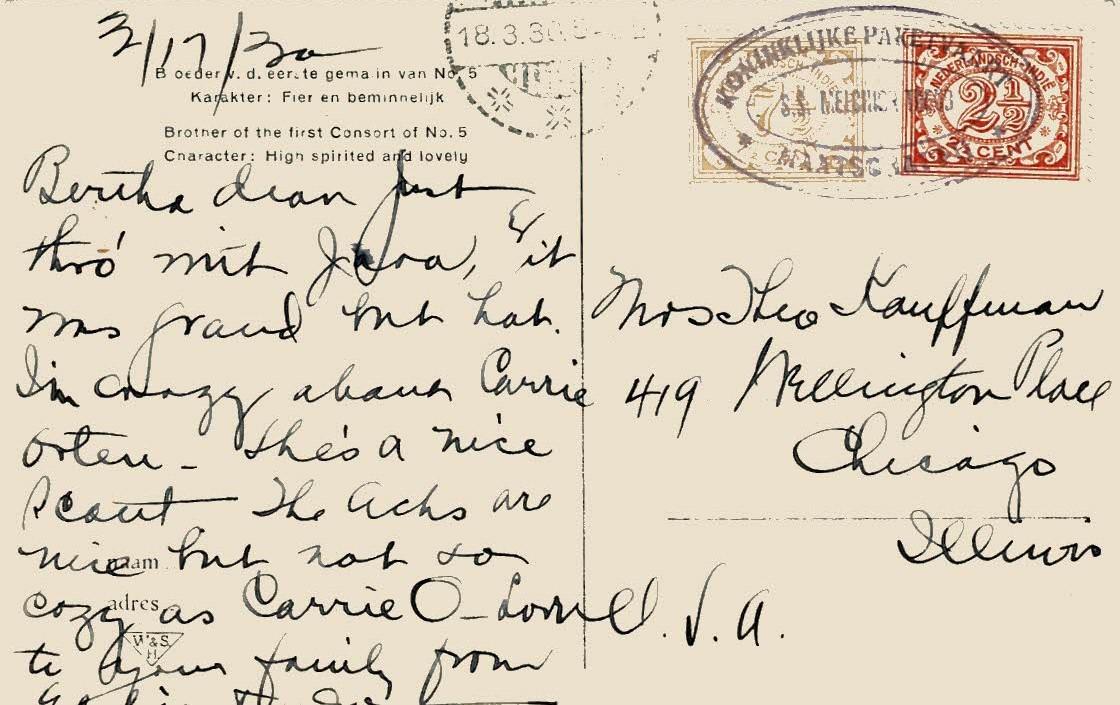 3/17/30
Broeder v. d. eerste gemalin van No. 5
Karakter: Fier en beminnelijk
Brother of the first Consort of No. 5
Character: High spirited and lovely
Bertha dear Just
thro' with Java, & it
was grand but hot.
I'm crazy about Carrie
Orten - She's a nice
Scout - The Achs are
nice but not so
cozy as Carrie O - Love
to your family from
naam
adres
W.&S.
H.
18.3.30
KONINKLIJKE PAKETVAART
S.S. MELCHIOR TREUB
MAATSCHAPPIJ
NEDERLANDSCH-INDIE
7½
CENT
NEDERLANDSCH-INDIE
2½
2½ CENT
Mrs Theo Kauffman
419 Wellington Place
Chicago
Illinois
U. S. A.